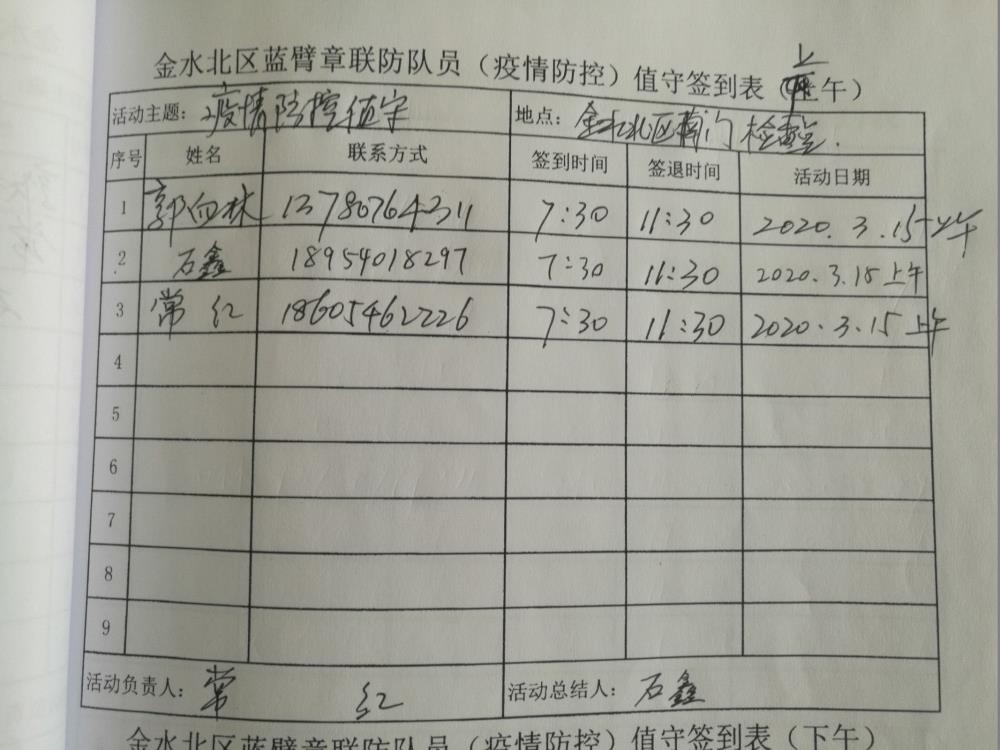 金水北区蓝臂章联防队员（疫情防控）值守签到表（上午）
活动主题：疫情防控值守 地点：金水北区南门检查室.
序号 姓名 联系方式 签到时间 签退时间 活动日期
1 郭向林 13780764311 7:30 11:30 2020.3.15上午
2 石鑫 18954018297 7:30 11:30 2020.3.15上午
3 常红 18605462226 7:30 11:30 2020.3.15上午
4
5
6
7
8
9
活动负责人：常红 活动总结人：石鑫
金水北区蓝臂章联防队员（疫情防控）值守签到表（下午）